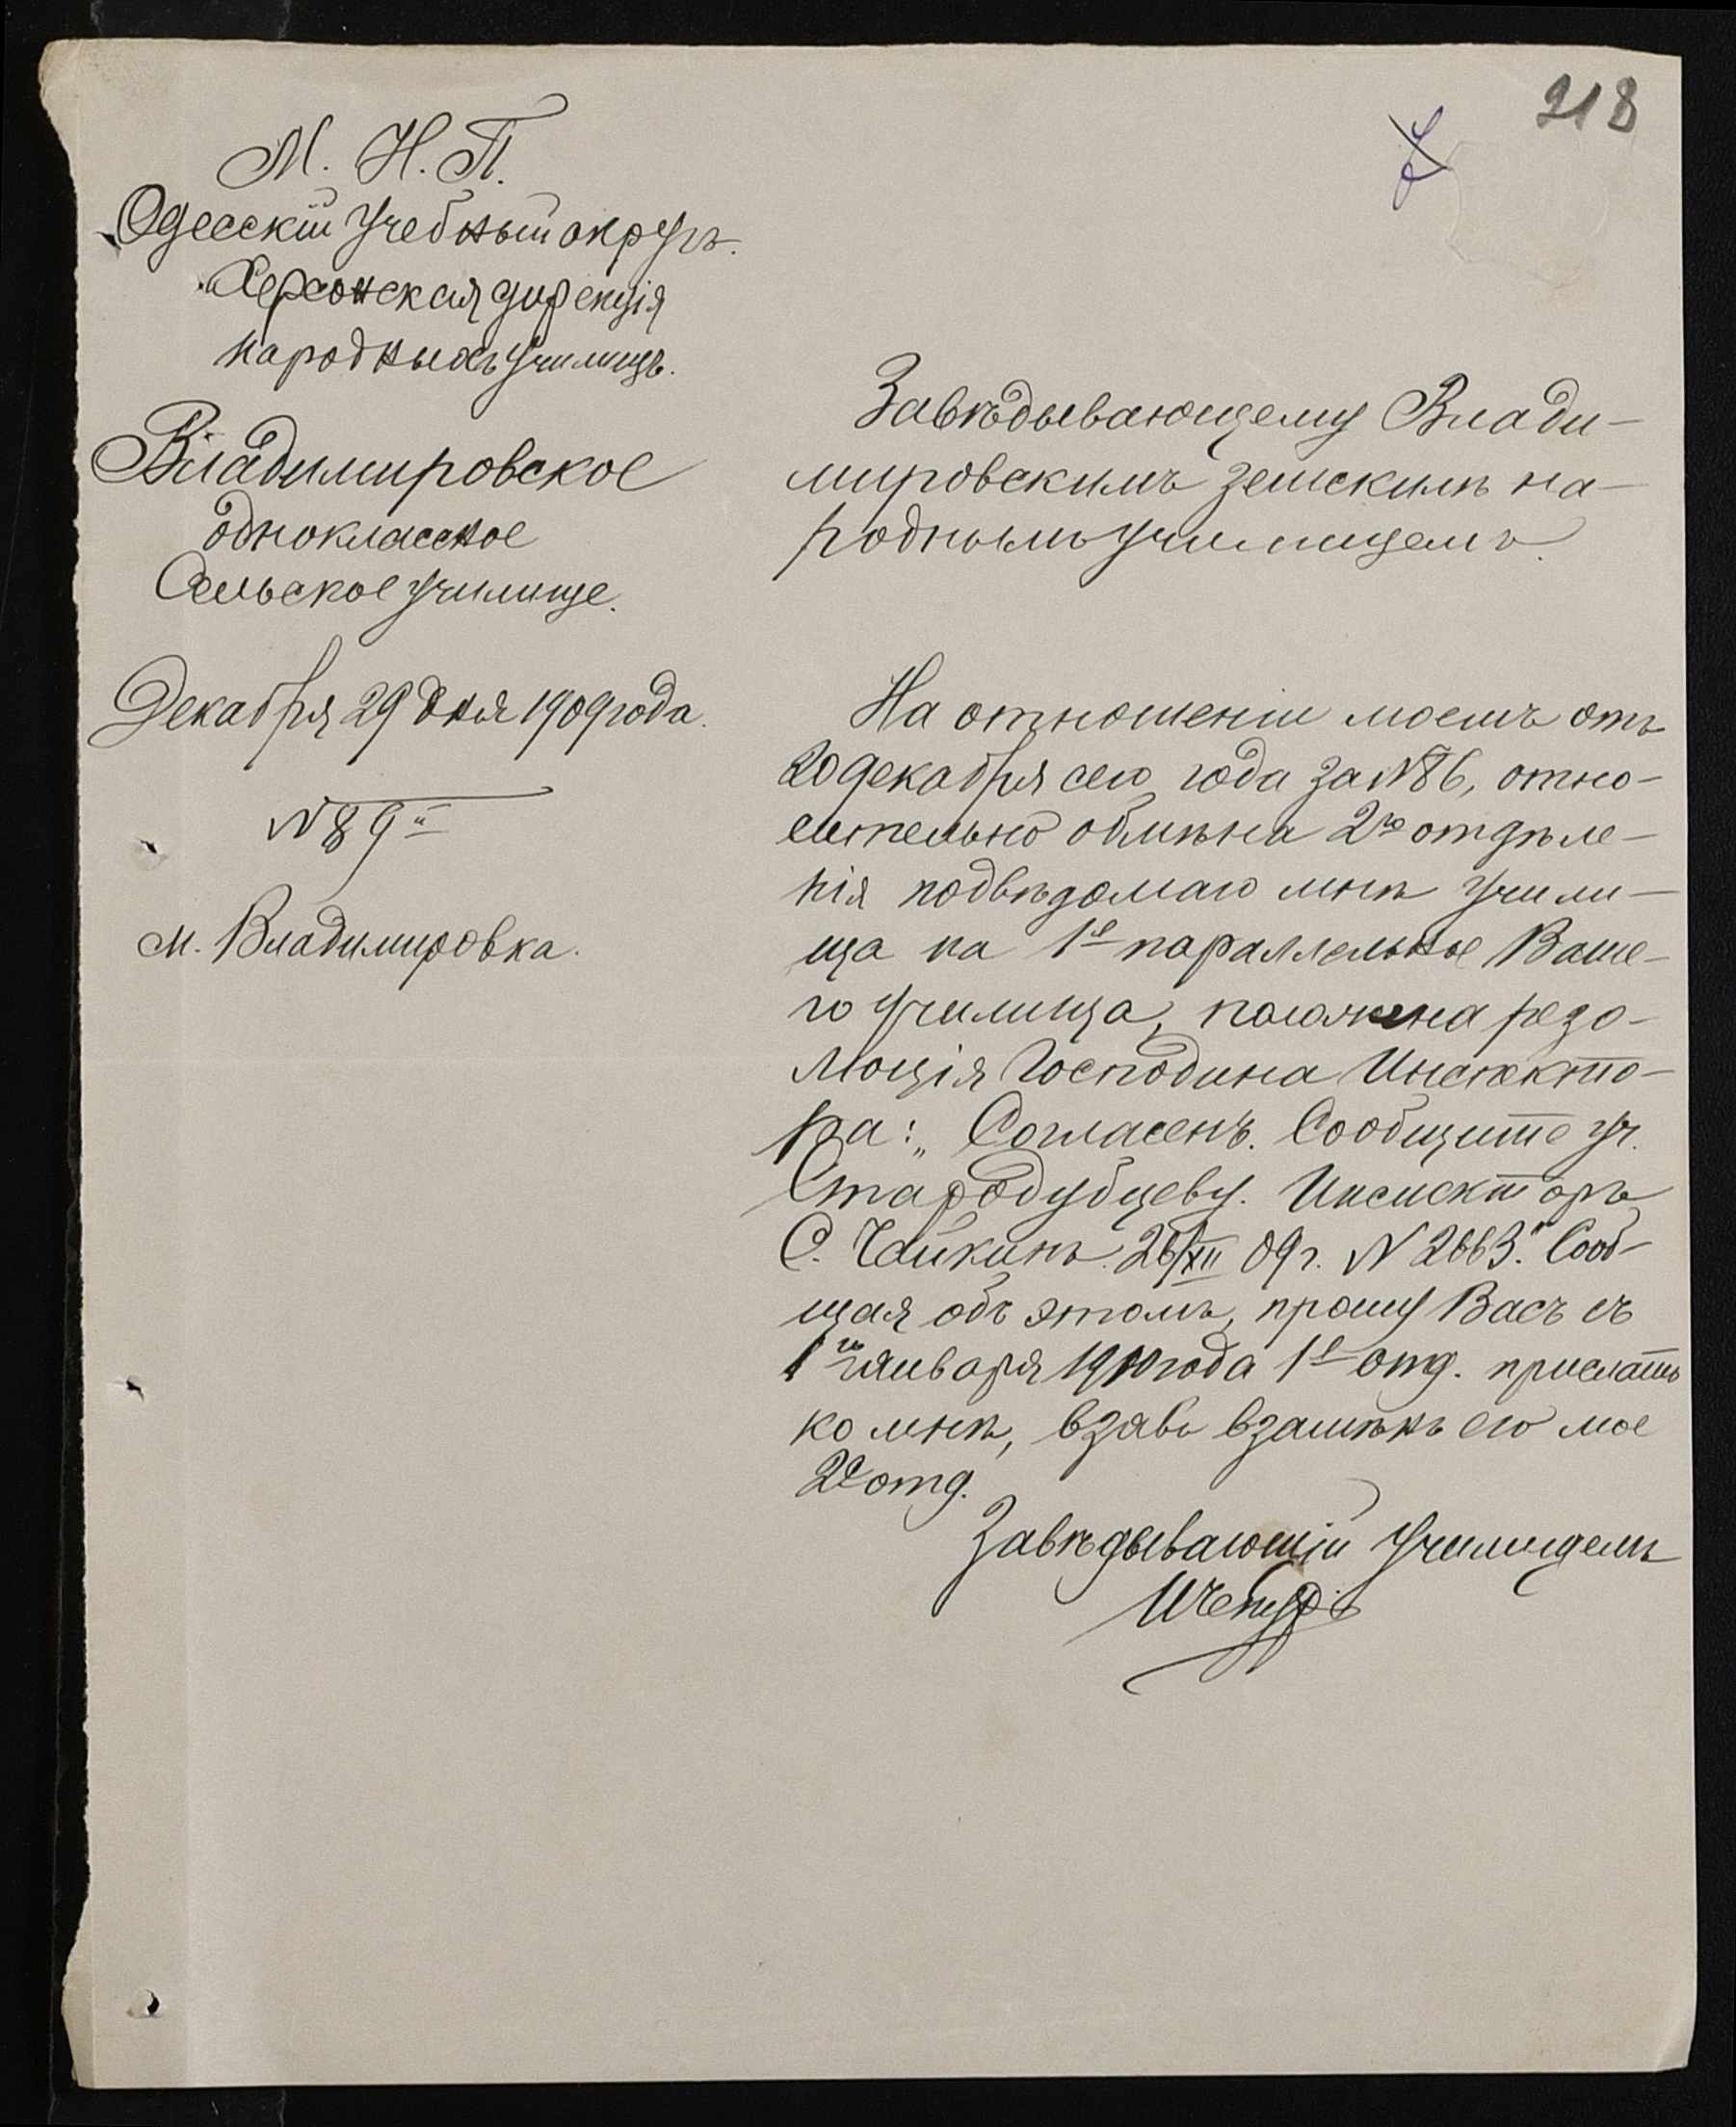 218
М. Н. П.
Одесскій учебный округъ.
Херсонская дирекція
народныхъ училищъ.
Владимировское
одноклассное
Сельское училище.
Декабря 29 дня 1909 года.
N 89й
м. Владимировка.
Завѣдывающему Влади-
мировскимъ земскимъ на-
роднымъ училищемъ.
На отношеніи моемъ отъ
20 декабря сего года за N 86, отно-
сительно обмѣна 2го отдѣле-
нія подвѣдомаго мнѣ учили-
ща на 1е параллельное Ваше-
го училища, положена резо-
люція Господина Инспекто-
ра: „Согласенъ. Сообщите уч.
Стародубцеву. Инспекторъ
С. Чайкинъ. 26/XII 09 г. N 2663." Сооб-
щая объ этомъ, прошу Васъ съ
1го января 1910 года 1е отд. прислать
ко мнѣ, взявъ взамѣнъ его мое
2е отд.
Завѣдывающій училищемъ